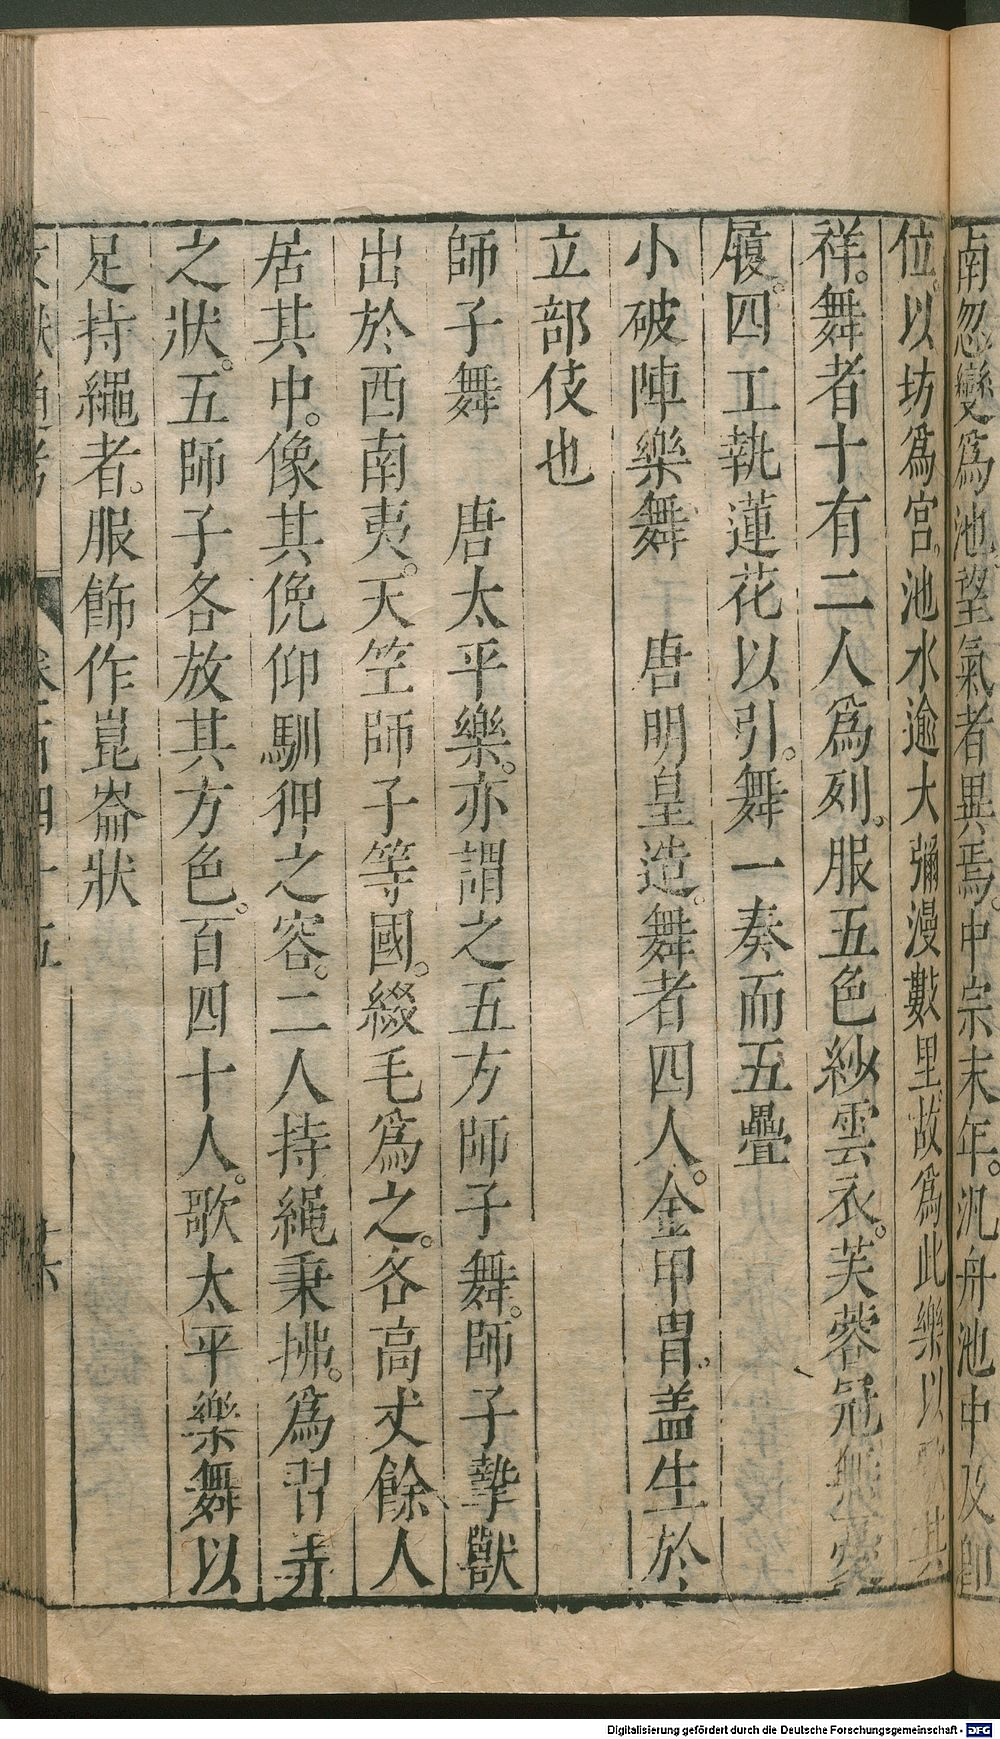 南忽變爲池望氣者異焉。中宗末年。汎舟池中及卽
位。以坊爲宮。池水逾大彌漫數里。故爲此樂以 其
祥。舞者十有二人爲列。服五色紗雲衣。芙蓉冠無憂
履。四工執蓮花以引。舞一奏而五疊
小破陣樂舞 唐明皇造。舞者四人。金甲冑。蓋生於
立部伎也
師子舞 唐太平樂。亦謂之五方師子舞。師子摯獸
出於西南夷。天竺師子等國。綴毛爲之。各高丈餘人
居其中。像其俛仰馴狎之容。二人持繩秉拂。爲習弄
之狀。五師子各放其方色。百四十人。歌太平樂舞以
足持繩者。服飾作崑崙狀
文獻通考 卷一百四十五 廿六
Digitalisierung gefördert durch die Deutsche Forschungsgemeinschaft - DFG